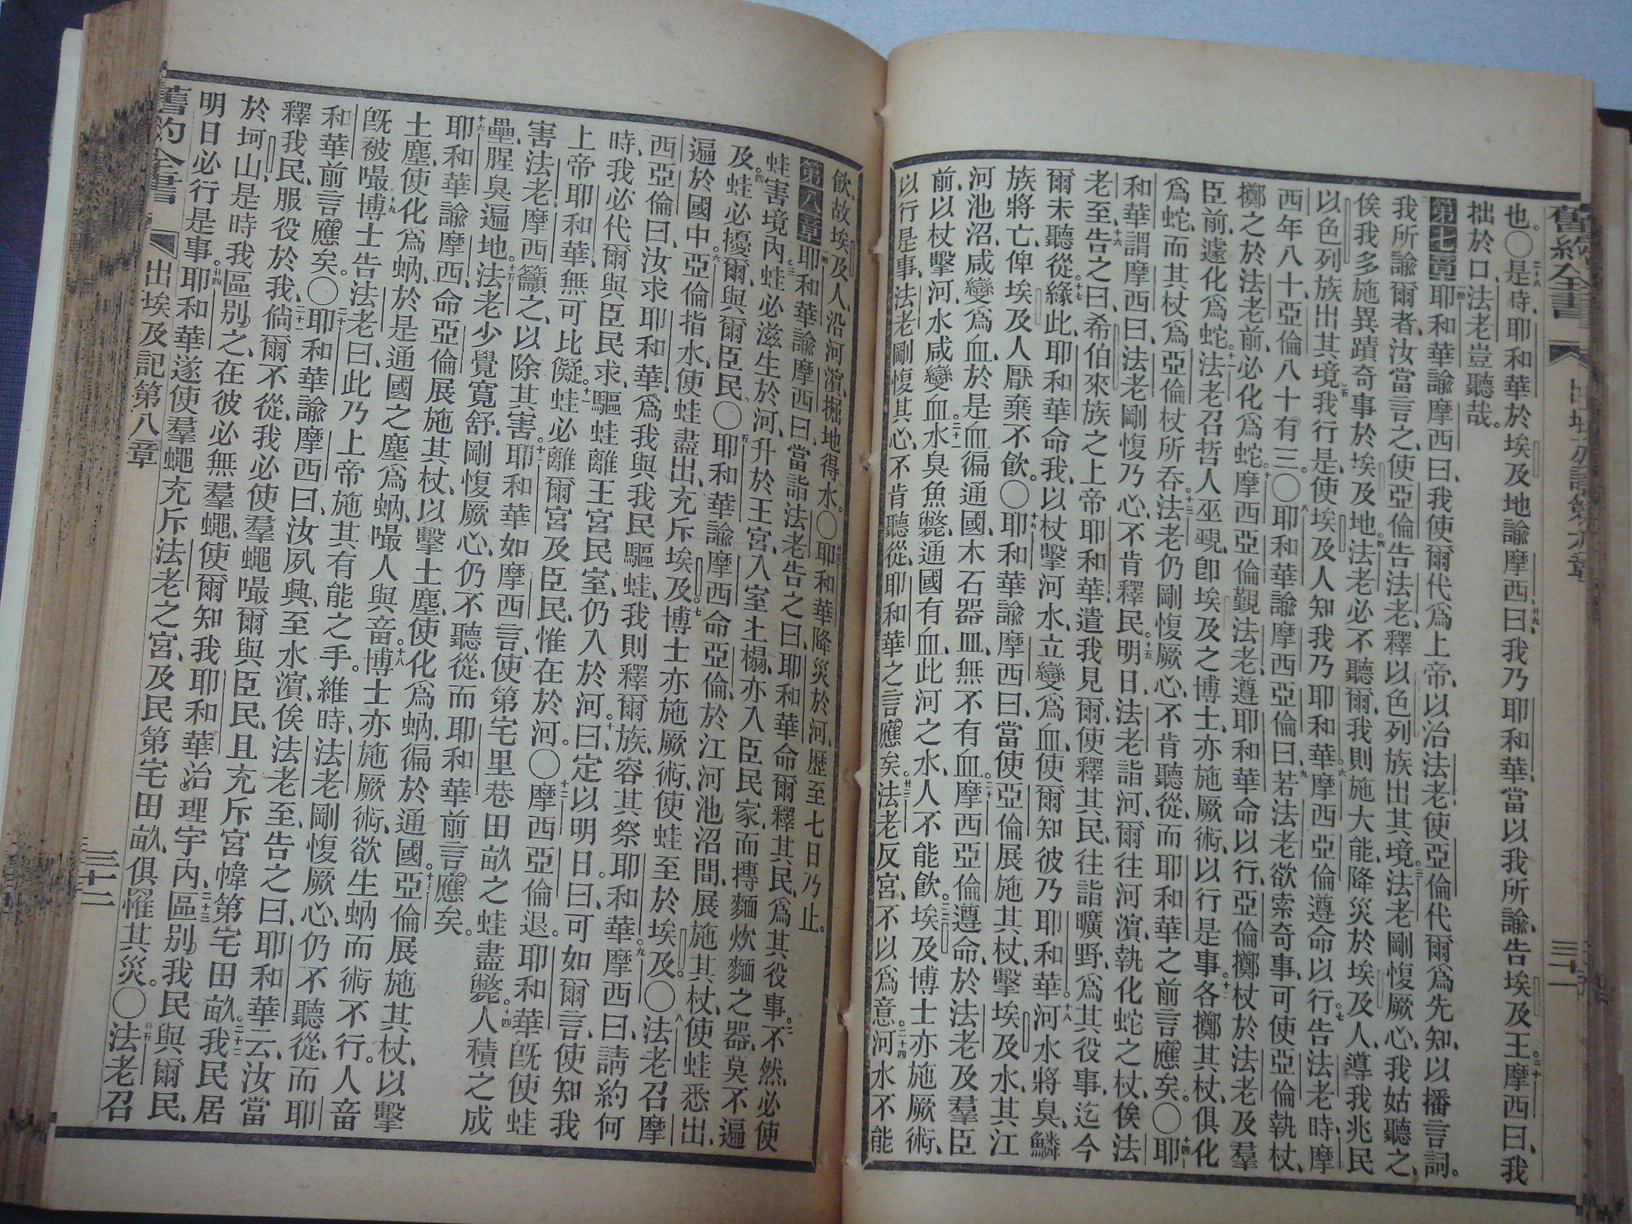 舊約全書
出埃及記第六章
三十一
也。〇二十八是時、耶和華於埃及地諭摩西曰、廿九我乃耶和華、當以我所諭、告埃及王。三十摩西曰、我
拙於口、法老豈聽哉。
第七章一耶和華諭摩西曰、我使爾代爲上帝、以治法老、使亞倫代爾爲先知、以播言詞。
我所諭爾者、汝當言之、使亞倫告法老、釋以色列族出其境、三法老剛愎厥心、我姑聽之、
俟我多施異蹟奇事於埃及地。四法老必不聽爾、我則施大能、降災於埃及人、導我兆民
以色列族出其境、五我行是、使埃及人知我乃耶和華。六摩西亞倫遵命以行。七告法老時、摩
西年八十、亞倫八十有三。〇八耶和華諭摩西亞倫曰、九若法老欲索奇事、可使亞倫執杖、
擲之於法老前、必化爲蛇。十摩西亞倫覲法老、遵耶和華命以行、亞倫擲杖於法老及羣
臣前、遽化爲蛇、十一法老召哲人巫覡、卽埃及之博士、亦施厥術、以行是事、十二各擲其杖、俱化
爲蛇、而其杖爲亞倫杖所吞、十三法老仍剛愎厥心、不肯聽從、而耶和華之前言應矣。〇十四耶
和華謂摩西曰、法老剛愎乃心、不肯釋民、十五明日、法老詣河、爾往河濱、執化蛇之杖、俟法
老至、十六告之曰、希伯來族之上帝耶和華、遣我見爾、使釋其民、往詣曠野、爲其役事、迄今
爾未聽從、十七緣此、耶和華命我、以杖擊河水、立變爲血、使爾知彼乃耶和華、十八河水將臭、鱗
族將亡、俾埃及人厭棄不飲。〇十九耶和華諭摩西曰、當使亞倫展施其杖、擊埃及水、其江
河池沼、咸變爲血、於是血徧通國、木石器皿、無不有血。二十摩西亞倫遵命、於法老及羣臣
前、以杖擊河、水咸變血、二十一水臭魚斃、通國有血、此河之水、人不能飲、二十二埃及博士亦施厥術、
以行是事、法老剛愎其心、不肯聽從、耶和華之言應矣。二十三法老反宮、不以爲意。二十四河水不能
飲、故埃及人沿河濱、掘地得水。〇耶和華降災於河、歷至七日乃止。
第八章一耶和華諭摩西曰、當詣法老、告之曰、耶和華命爾釋其民、爲其役事。二不然、必使
蛙害境內、三蛙必滋生於河、升於王宮、入室土榻、亦入臣民家、而摶麵炊麵之器、莫不遍
及。四蛙必擾爾、與爾臣民。〇五耶和華諭摩西、命亞倫、於江河池沼間、展施其杖、使蛙悉出、
遍於國中、六亞倫指水、使蛙盡出、充斥埃及、七博士亦施厥術、使蛙至於埃及。〇八法老召摩
西亞倫曰、汝求耶和華、爲我與我民驅蛙、我則釋爾族、容其祭耶和華。九摩西曰、請約何
時、我必代爾與臣民求、驅蛙離王宮民室、仍入於河。十曰、定以明日。曰、可、如爾言、使知我
上帝耶和華、無可比儗、十一蛙必離爾宮、及臣民、惟在於河。〇十二摩西亞倫退、耶和華旣使蛙
害法老、摩西籲之、以除其害。十三耶和華如摩西言、使第宅里巷田畝之蛙盡斃。十四人積之成
壘、腥臭遍地。十五法老少覺寬舒、剛愎厥心、仍不聽從、而耶和華前言應矣。
十六耶和華諭摩西、命亞倫展施其杖、以擊土塵、使化爲蚋、徧於通國。十七亞倫展施其杖、以擊
土塵、使化爲蚋、於是通國之塵爲蚋、嘬人與畜。十八博士亦施厥術、欲生蚋而術不行。人畜
旣被嘬、十九博士告法老曰、此乃上帝施其有能之手。維時、法老剛愎厥心、仍不聽從、而耶
和華前言應矣。〇二十耶和華諭摩西曰、汝夙興、至水濱、俟法老至、告之曰、耶和華云、汝當
釋我民、服役於我、二十一倘爾不從、我必使羣蠅嘬爾與臣民、且充斥宮幃第宅田畝、二十二我民居
於坷山、是時我區別之、在彼必無羣蠅、使爾知我耶和華治理宇內、二十三區別我民與爾民、
明日必行是事、廿四耶和華遂使羣蠅充斥法老之宮、及民第宅田畝、俱罹其災。〇廿五法老召
舊約全書
出埃及記第八章
三十二